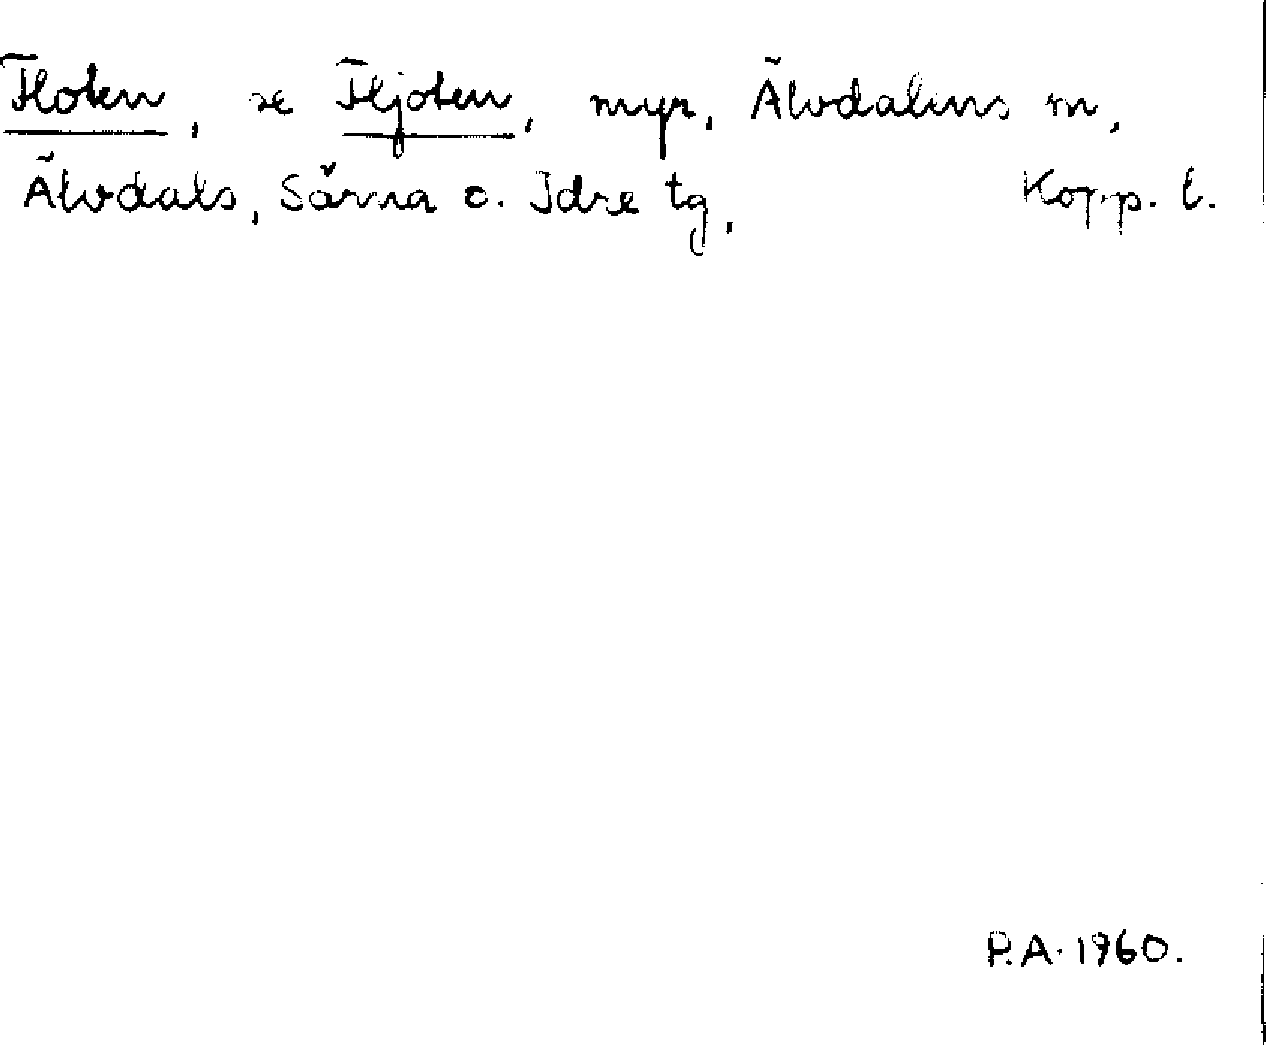 Floten, se Fljoten, myr, Älvdalens m,
Älvdals, Särna o. Idre tg, Kopp. l.
P.A. 1960.